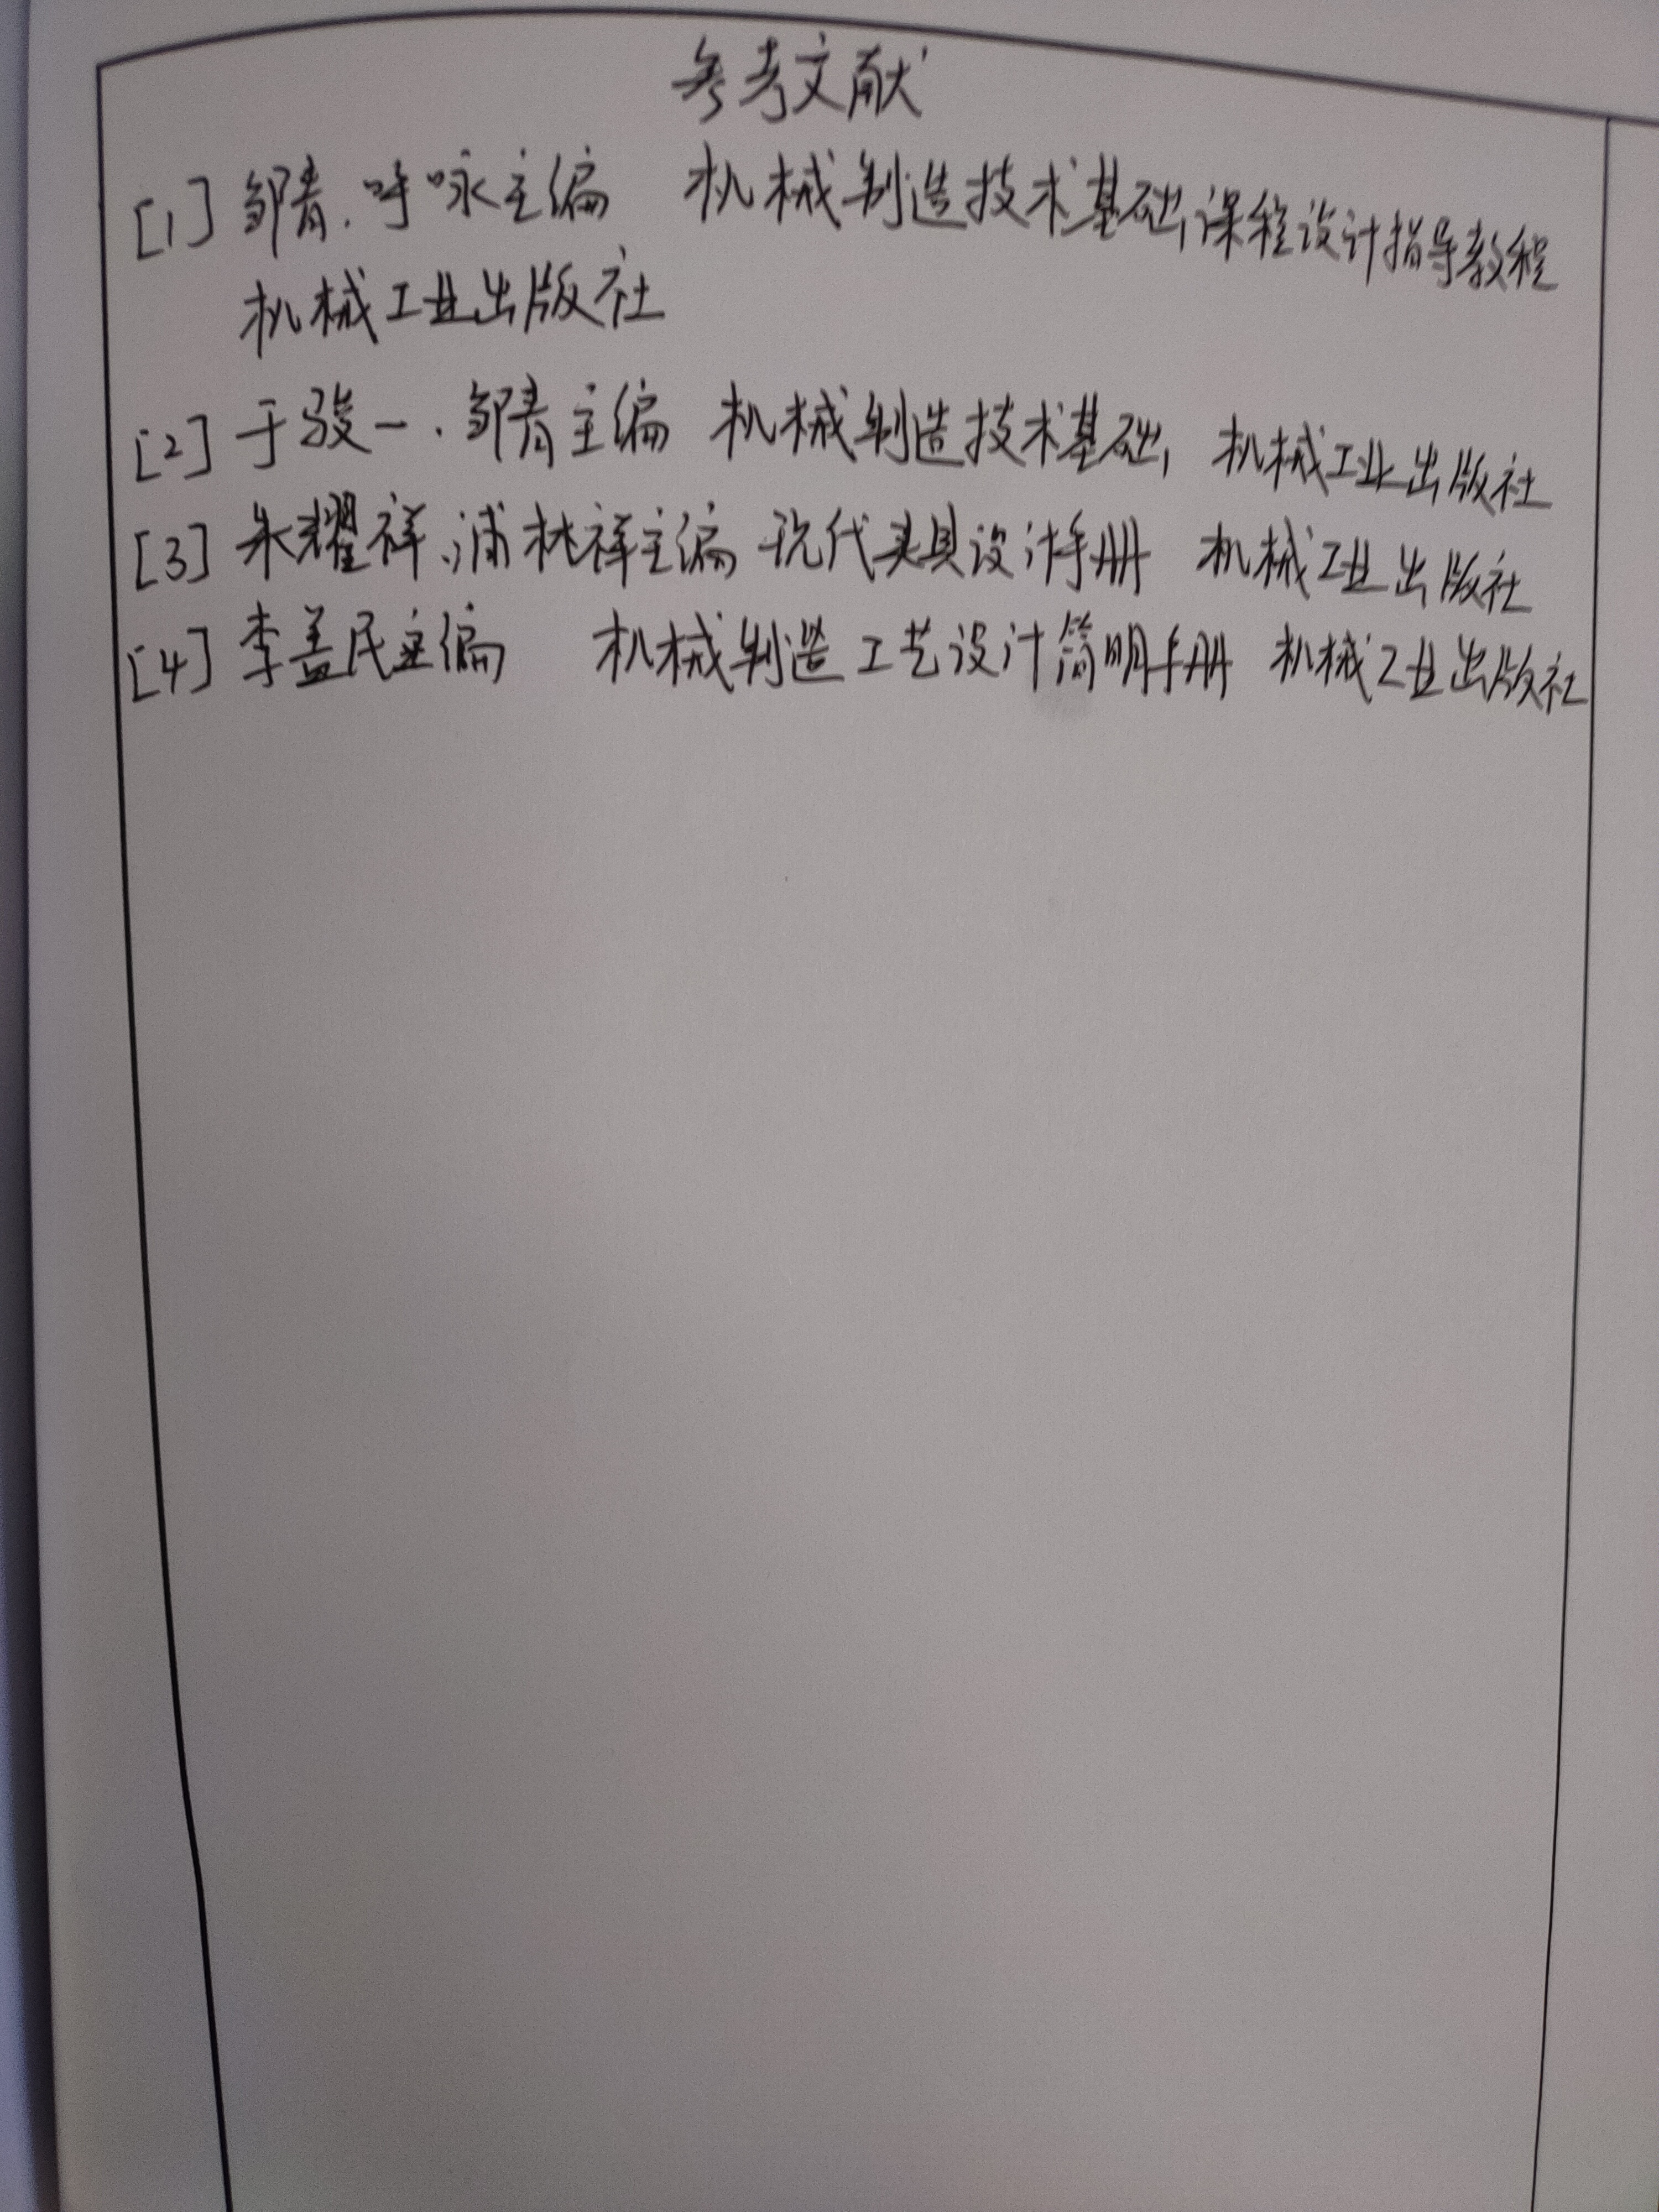 参考文献
[1] 邹青、呼咏主编 机械制造技术基础课程设计指导教程
机械工业出版社
[2] 于骏一、邹青主编 机械制造技术基础, 机械工业出版社
[3] 朱耀祥、浦林祥主编 现代夹具设计手册 机械工业出版社
[4] 李益民主编 机械制造工艺设计简明手册 机械工业出版社